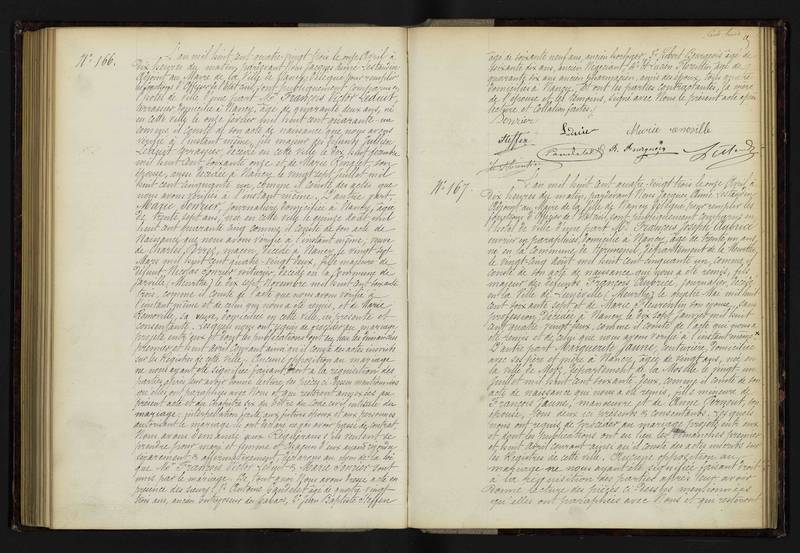 N° 166.
L'an mil huit cent quatre vingt trois le onze Avril à
Dix heures du matin, pardevant Nous Jacques Aimé
Adjoint au Maire de la Ville de Nancy, délégué pour remplir
les fonctions d'Officier de l'état civil, sont publiquement comparus en
l'hotel de ville d'une part Mr François Victor
domicilié à Nancy, âgé de quarante deux ans, né
en cette ville le onze février mil huit cent quarante un
comme il conste de son acte de naissance que nous avons
vérifié à l'instant même, fils majeur de défunts
décédé en cette ville le Dix huit
mil huit cent soixante onze et de Marie son
épouse, aussi décédée à Nancy le vingt sept Juillet mil
huit cent cinquante un, comme il conste des actes que
nous avons vérifiés à l'instant même. D'autre part
Marie journalière, domiciliée à Nancy, âgée
de trente sept ans, née en cette ville le quinze Août mil
huit cent quarante cinq comme il conste de son acte de
naissance que nous avons vérifié à l'instant même, veuve
de Charles maçon, décédé à Nancy le vingt
Mars mil huit cent quatre vingt deux, fille majeure de
défunt Nicolas voiturier, décédé en la commune de
Jarville (Meurthe) le dix sept Novembre mil huit cent soixante
trois, comme il conste de l'acte que nous avons vérifié à
l'instant même et de celui qui nous a été remis, et de Marie
Renoville, sa veuve, domiciliée en cette ville, ici présente et
consentante. Lesquels nous ont requis de procéder au mariage
projeté entr'eux et dont les publications ont eu lieu les Dimanches
premier et huit Avril courant ainsi qu'il conste des actes inscrits
sur les Registres de cette ville. Aucune opposition au mariage
ne nous ayant été signifiée, faisant droit à la réquisition des
parties, après leur avoir donné lecture des pièces ci dessus mentionnées
qu'elles ont paraphées avec Nous et qui resteront annexées au
présent acte et du chapitre six du titre du Code civil intitulé du
mariage; interpellation faite aux futurs époux et aux personnes
autorisant le mariage, ils ont déclaré ne pas avoir passé de contrat.
Nous avons demandé aux Requérans s'ils veulent se
prendre pour mari et femme et chacun d'eux ayant répondu
séparément & affirmativement, Déclarons au nom de la loi
que Mr François Victor & Marie sont
unis par le mariage. De tout quoi Nous avons dressé acte en
présence des sieurs Antoine âgé de quatre vingt
trois ans, ancien Jean Baptiste Steffen
âgé de soixante neuf ans, ancien horloger, Sr Hubert Bourgeois âgé de
soixante dix ans, ancien & Sr Lucien Florentin, âgé de
quarante six ans ancien pharmacien, amis des époux, tous quatre
domiciliés à Nancy. Et ont les parties contractantes, la mère
de l'épouse et les témoins, signé avec Nous le présent acte après
lecture et collation faites.
Marie renoville
Steffen
N° 167.
L'an mil huit cent quatre vingt trois le onze Avril à
Dix heures du matin, pardevant Nous Jacques Aimé
Adjoint au Maire de la Ville de Nancy, délégué pour remplir les
fonctions d'Officier de l'état civil, sont publiquement comparus en
l'hotel de ville d'une part Mr François Joseph
ouvrier en parapluies, domicilié à Nancy, âgé de trente un ans
né en la commune de département de la Meurthe
le vingt cinq Août mil huit cent cinquante un, comme il
conste de son acte de naissance qui nous a été remis, fils
majeur des défunts François journalier, décédé
en la ville de Lunéville (Meurthe) le quatre Mai mil huit
cent soixante sept et de Marie son épouse, sans
profession, décédée à Nancy le dix sept Janvier mil huit
cent quatre vingt deux, comme il conste de l'acte qui nous a
été remis et de celui que nous avons vérifié à l'instant même
D'autre part Marguerite couturière, domiciliée
avec ses père et mère à Nancy, âgée de vingt ans, née en
la ville de Metz, département de la Moselle le vingt un
Juillet mil huit cent soixante deux, comme il conste de son
acte de naissance qui nous a été remis, fille mineure de
François manoeuvre, et de Anne son
épouse, tous deux ici présents & consentants. Lesquels
nous ont requis de procéder au mariage projeté entr'eux
et dont les publications ont eu lieu les Dimanches premier
et huit Avril courant ainsi qu'il conste des actes inscrits sur
les Registres de cette ville. Aucune opposition au
mariage ne nous ayant été signifiée, faisant droit
à la réquisition des parties, après leur avoir
donné lecture des pièces ci dessus mentionnées
qu'elles ont paraphées avec Nous et qui resteront